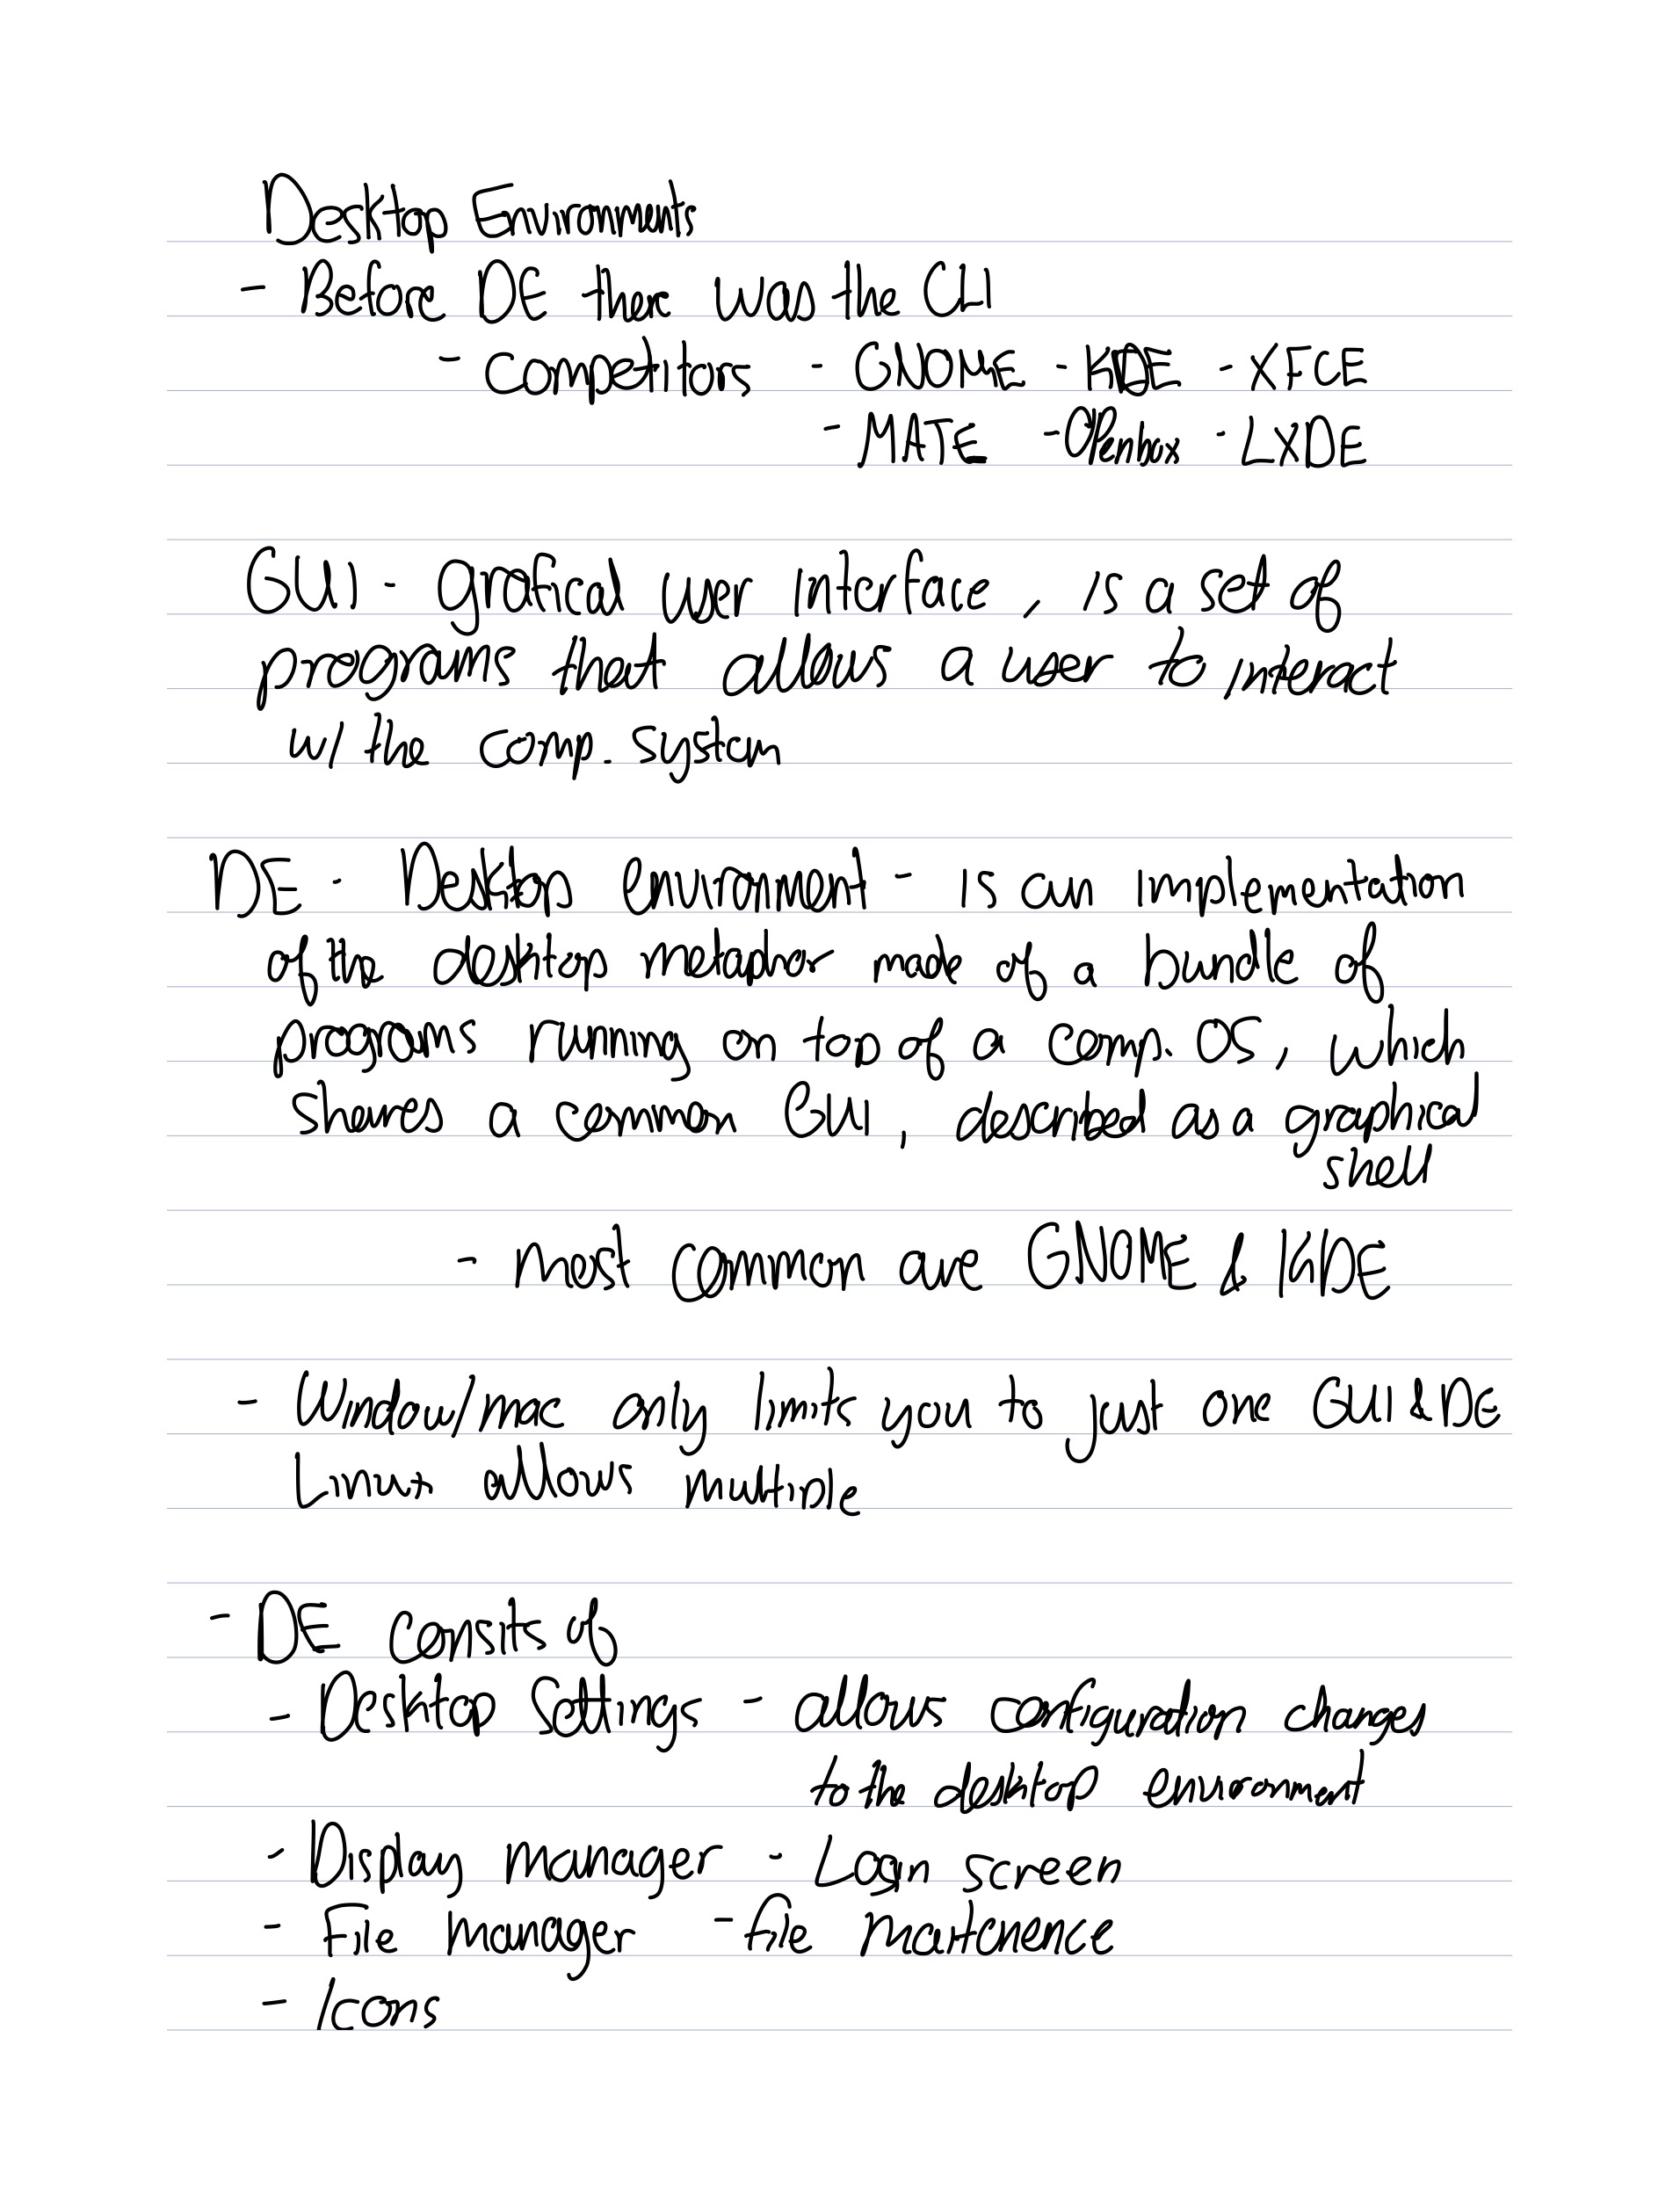 Desktop Enviroments
- Before DE there was the CLI
- Competitors - GNOME - KDE - XFCE
- MATE - OPenbox - LXDE
GUI - grafical user interface, is a set of
programs that allows a user to interact
w/ the comp. system
DE - Desktop enviroment - is an implementation
of the desktop metaphor made of a bundle of
programs running on top of a comp. OS, which
shares a common GUI, described as a graphical
shell
- most common are GNOME & KDE
- Window/mac only limits you to just one GUI & DE
Linux allows multiple
- DE consits of
- Desktop Settings - allows configuration changes
to the desktop environment
- Display manager - Login screen
- File manager - file maitenence
- Icons